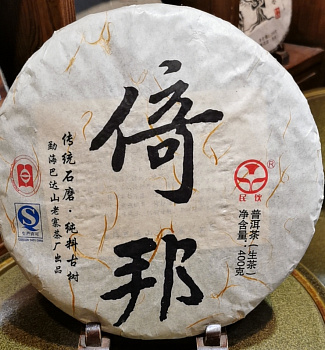 倚邦
传统石磨·纯料古树
勐海巴达山老寨茶厂出品
民饮
®
普洱茶(生茶)
净含量:400克